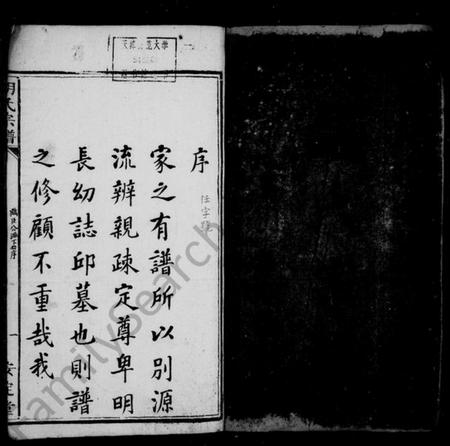 序
家之有譜所以别源
流辨親疎定尊卑明
長幼誌邱墓也則譜
之修顧不重哉我
氏宗譜
一
FamilySearch